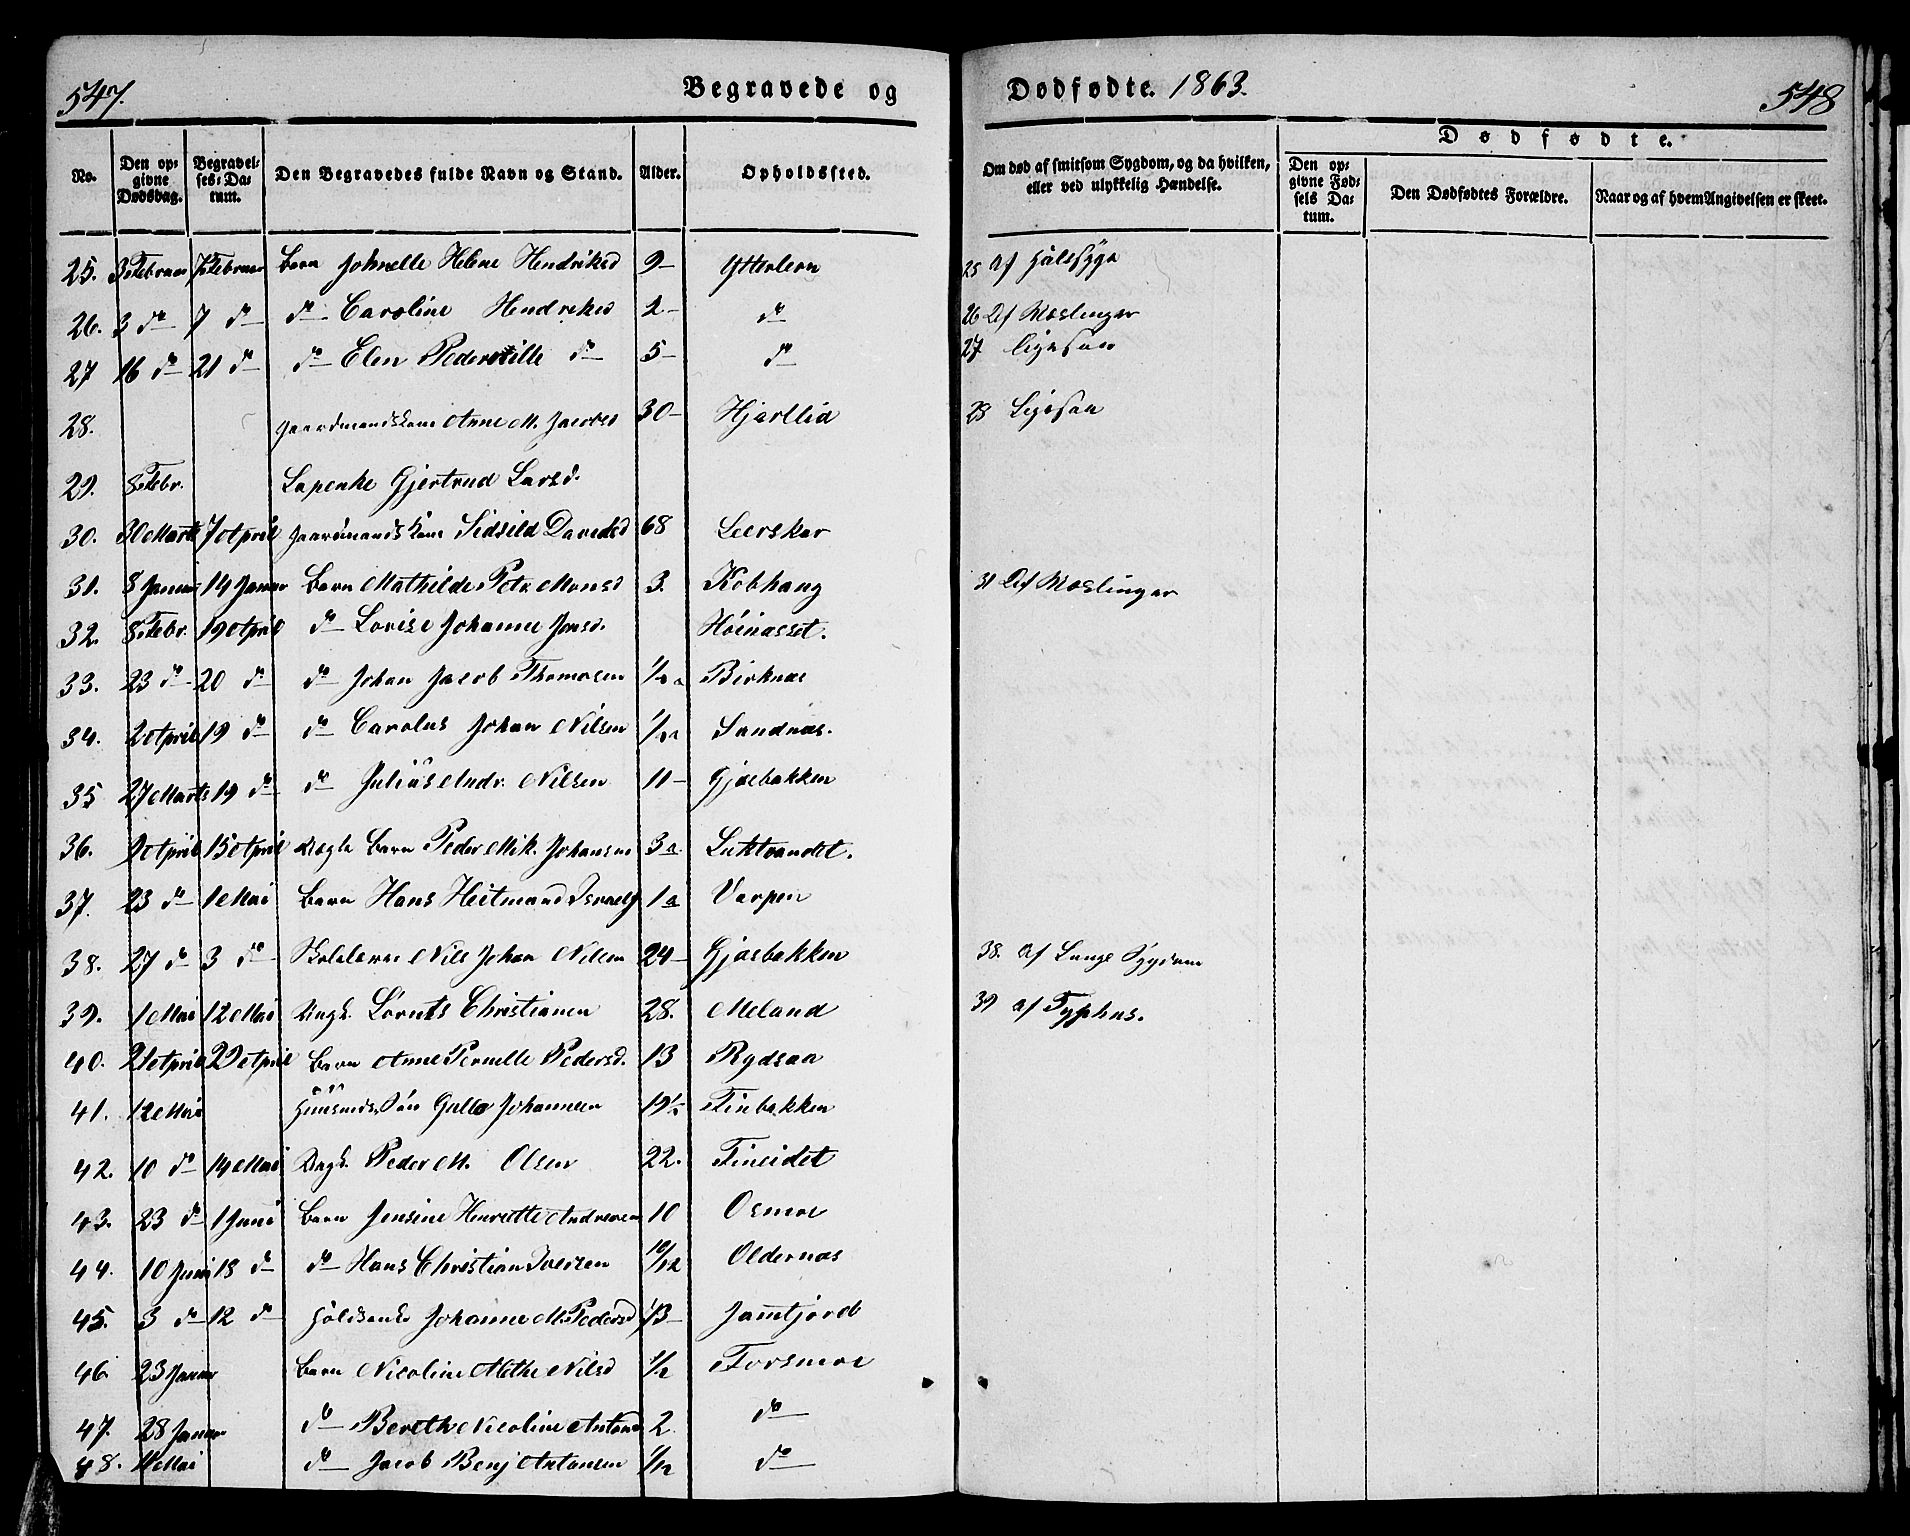 547. Begravede og
Dødfødte. 1863. 548
No. Den opgivne Dødsdag. Begravelses-Datum. Den Begravedes fulde Navn og Stand. Alder. Opholdssted.
Om død af smitsom Sygdom, og da hvilken, eller ved ulykkelig Hændelse. Dødfødte. Den opgivne Fødsels Datum. Den Dødfødtes Forældre. Naar og af hvem Angivelsen er skeet.
25. 3 Februar 7 Februar Barn Johnelle Helene Hendriksd 9 - Ytterleren 25 Af Halssyge
26. 3 do 7 do do Caroline Hendriksd 2 - do 26 Af Mæslinger
27 16 do 21 do do Elen Pedernille do 5 - do 27 ligesaa
28. Gaardmandskone Anne M. Jacobsd 30 - Hjartlid 28 Ligesaa
29. 8 Febr. Lapenke Gjertrud Larsd.
30. 30 Marts 7 April Gaardmandskone Sidsild Davidsd 68 Leerskar
31. 8 Januar 14 Januar Barn Mathilde Petr. Monsd 3. Kobhaug 31 Af Mæslinger
32. 8 Febr. 19 April do Lovise Johanne Jonsd. Høinasset.
33. 23 do 20 do do Johan Jacob Thomasen 1/2 a Birknæs
34. 2 April 19 do do Carolus Johan Nilsen Sandnæs.
35 27 Marts 19 do do Julius Andr. Nilsen 11 - Gjæsbakken
36. 9 April 15 April Barn Peder Mik. Johansen 3 a Luktvandet.
37. 23 do 1 Mai Barn Hans Heitmand Israels 1 a Varpen
38. 27 do 3 do Nils Johan Nilsen 24 - Gjæsbakken 38. Af Lunge Sygdom
39. 1 Mai 12 Mai Ungk. Lørnts Christiansen 28. Meland 39 af Typhus.
40. 21 April 29 April Barn Anne Pernelle Pedersd. 13 Rydsaa
41. 12 Mai Huusmds Søn Johannesen 19 1/2 Finbakken
42. 10 do 14 Mai Ungk. Peder M. Olsen 22. Fineidet
43. 23 do 1 Juni Barn Jensine Henriette Andreasen 10 Osmoe
44. 10 Juni 18 do do Hans Christian Iversen 10/12 Oldernæs
45. 3 do 12 do Johanne M. Pedersd 73 - Jamtjord
46. 23 Januar Barn Nicoline Methe Nilsd 1/2 Forsmoe
47. 28 Januar do Berethe Nicoline Antonsd 2. do
48. 11 Mai do Jacob Benj. Antonsen 1/12 do